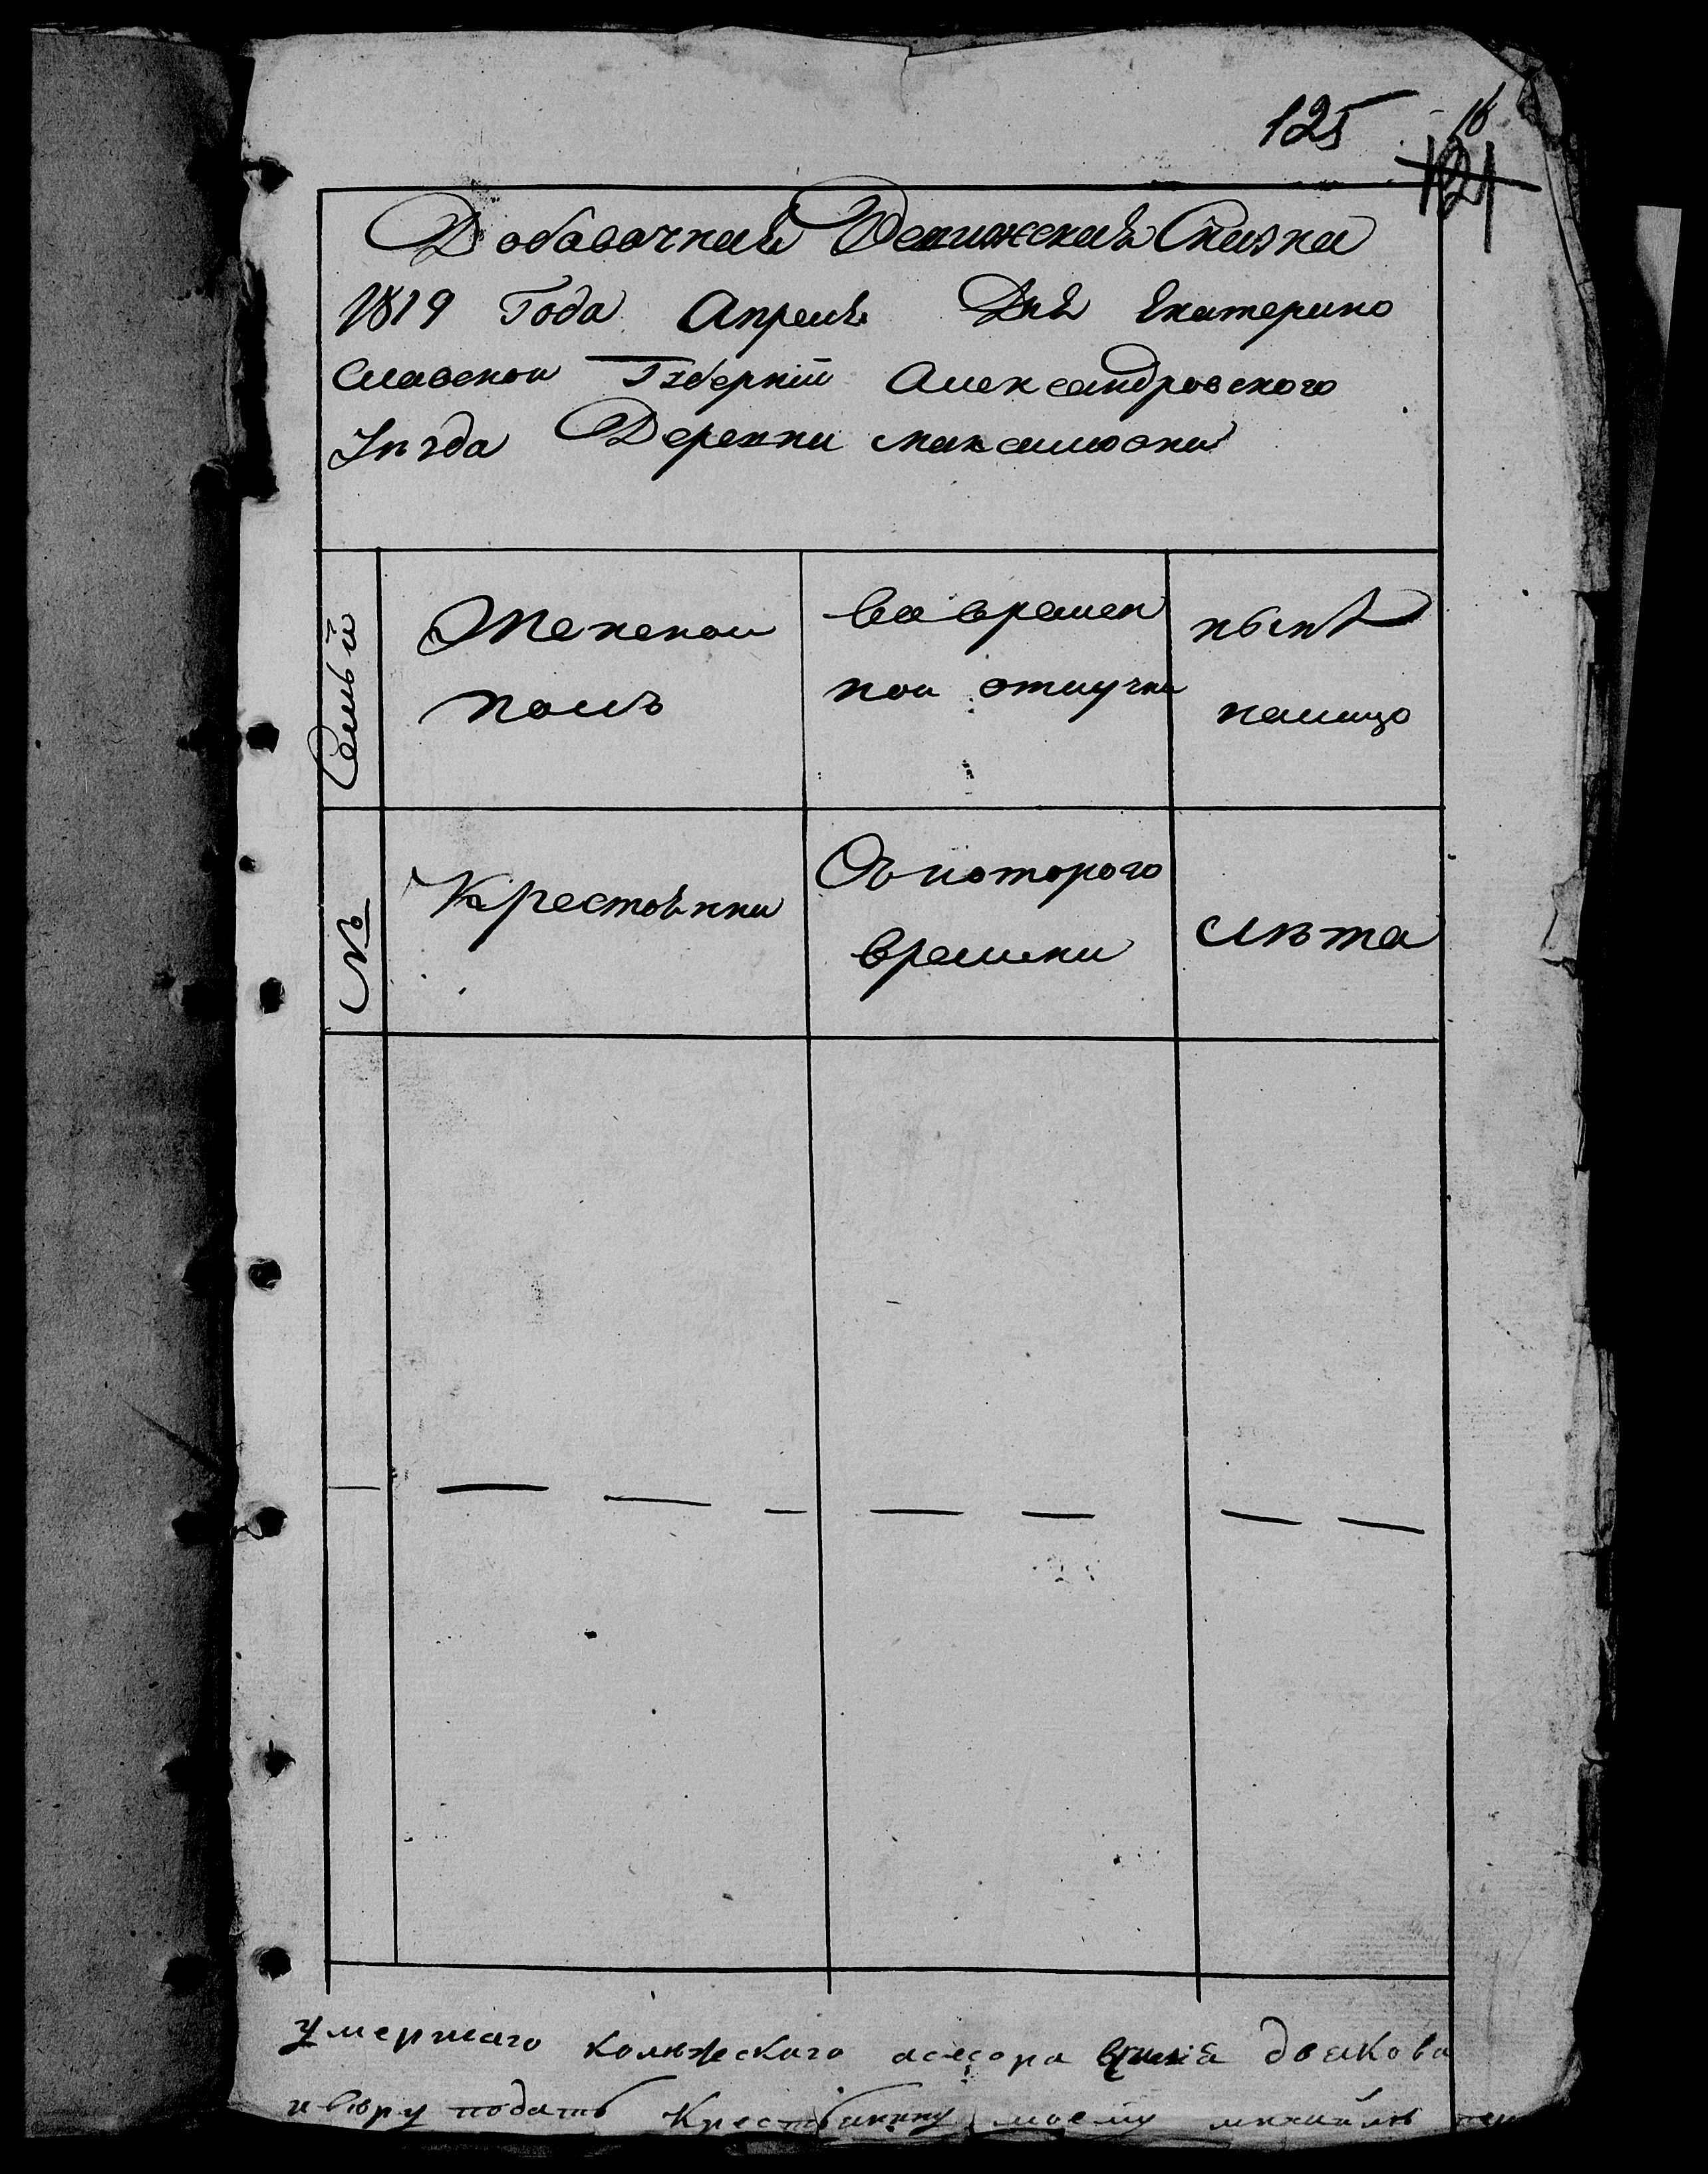 125
18
121
Добавочная Ревижская Сказка
1819 Года Апреля Дня Екатерино
Славской Губерніи Александровского
Уѣзда Деревни максимовки
Семьи
Женской
полъ
во времен
ной отлучки
нынѣ
налицо
№
Крестьянки
Съ которого
времени
лѣта
умершаго колежскаго асесора дьякова
подать Крестьянину моему михайлѣ